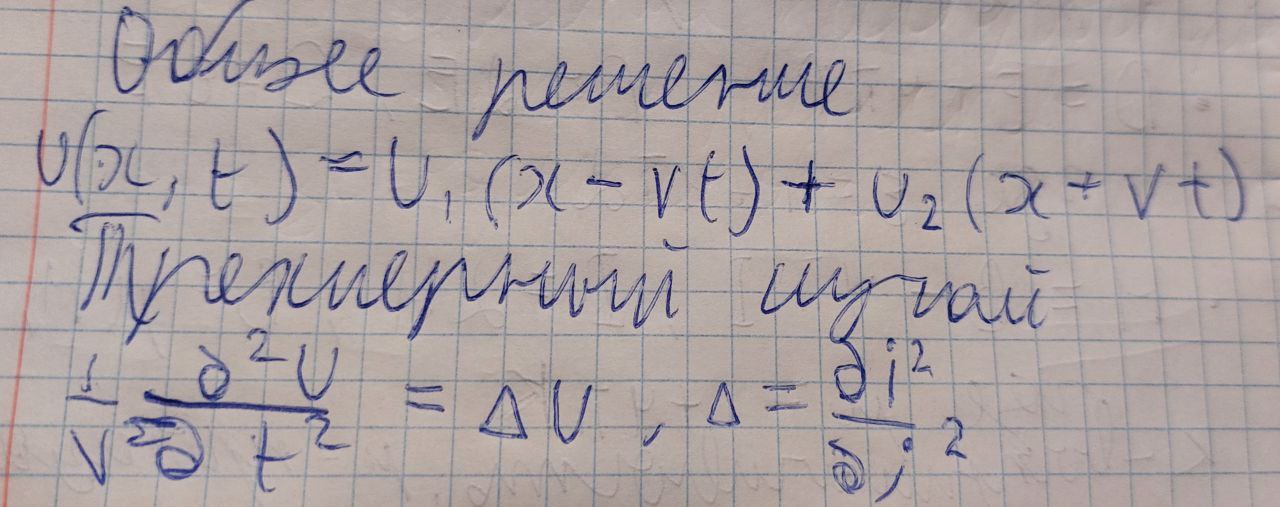 Общее решение
U(x, t) = U₁ (x - vt) + U₂ (x + vt)
Трехмерный случай
1/v² ∂²U/∂t² = ΔU, Δ = ∂i²/∂j²